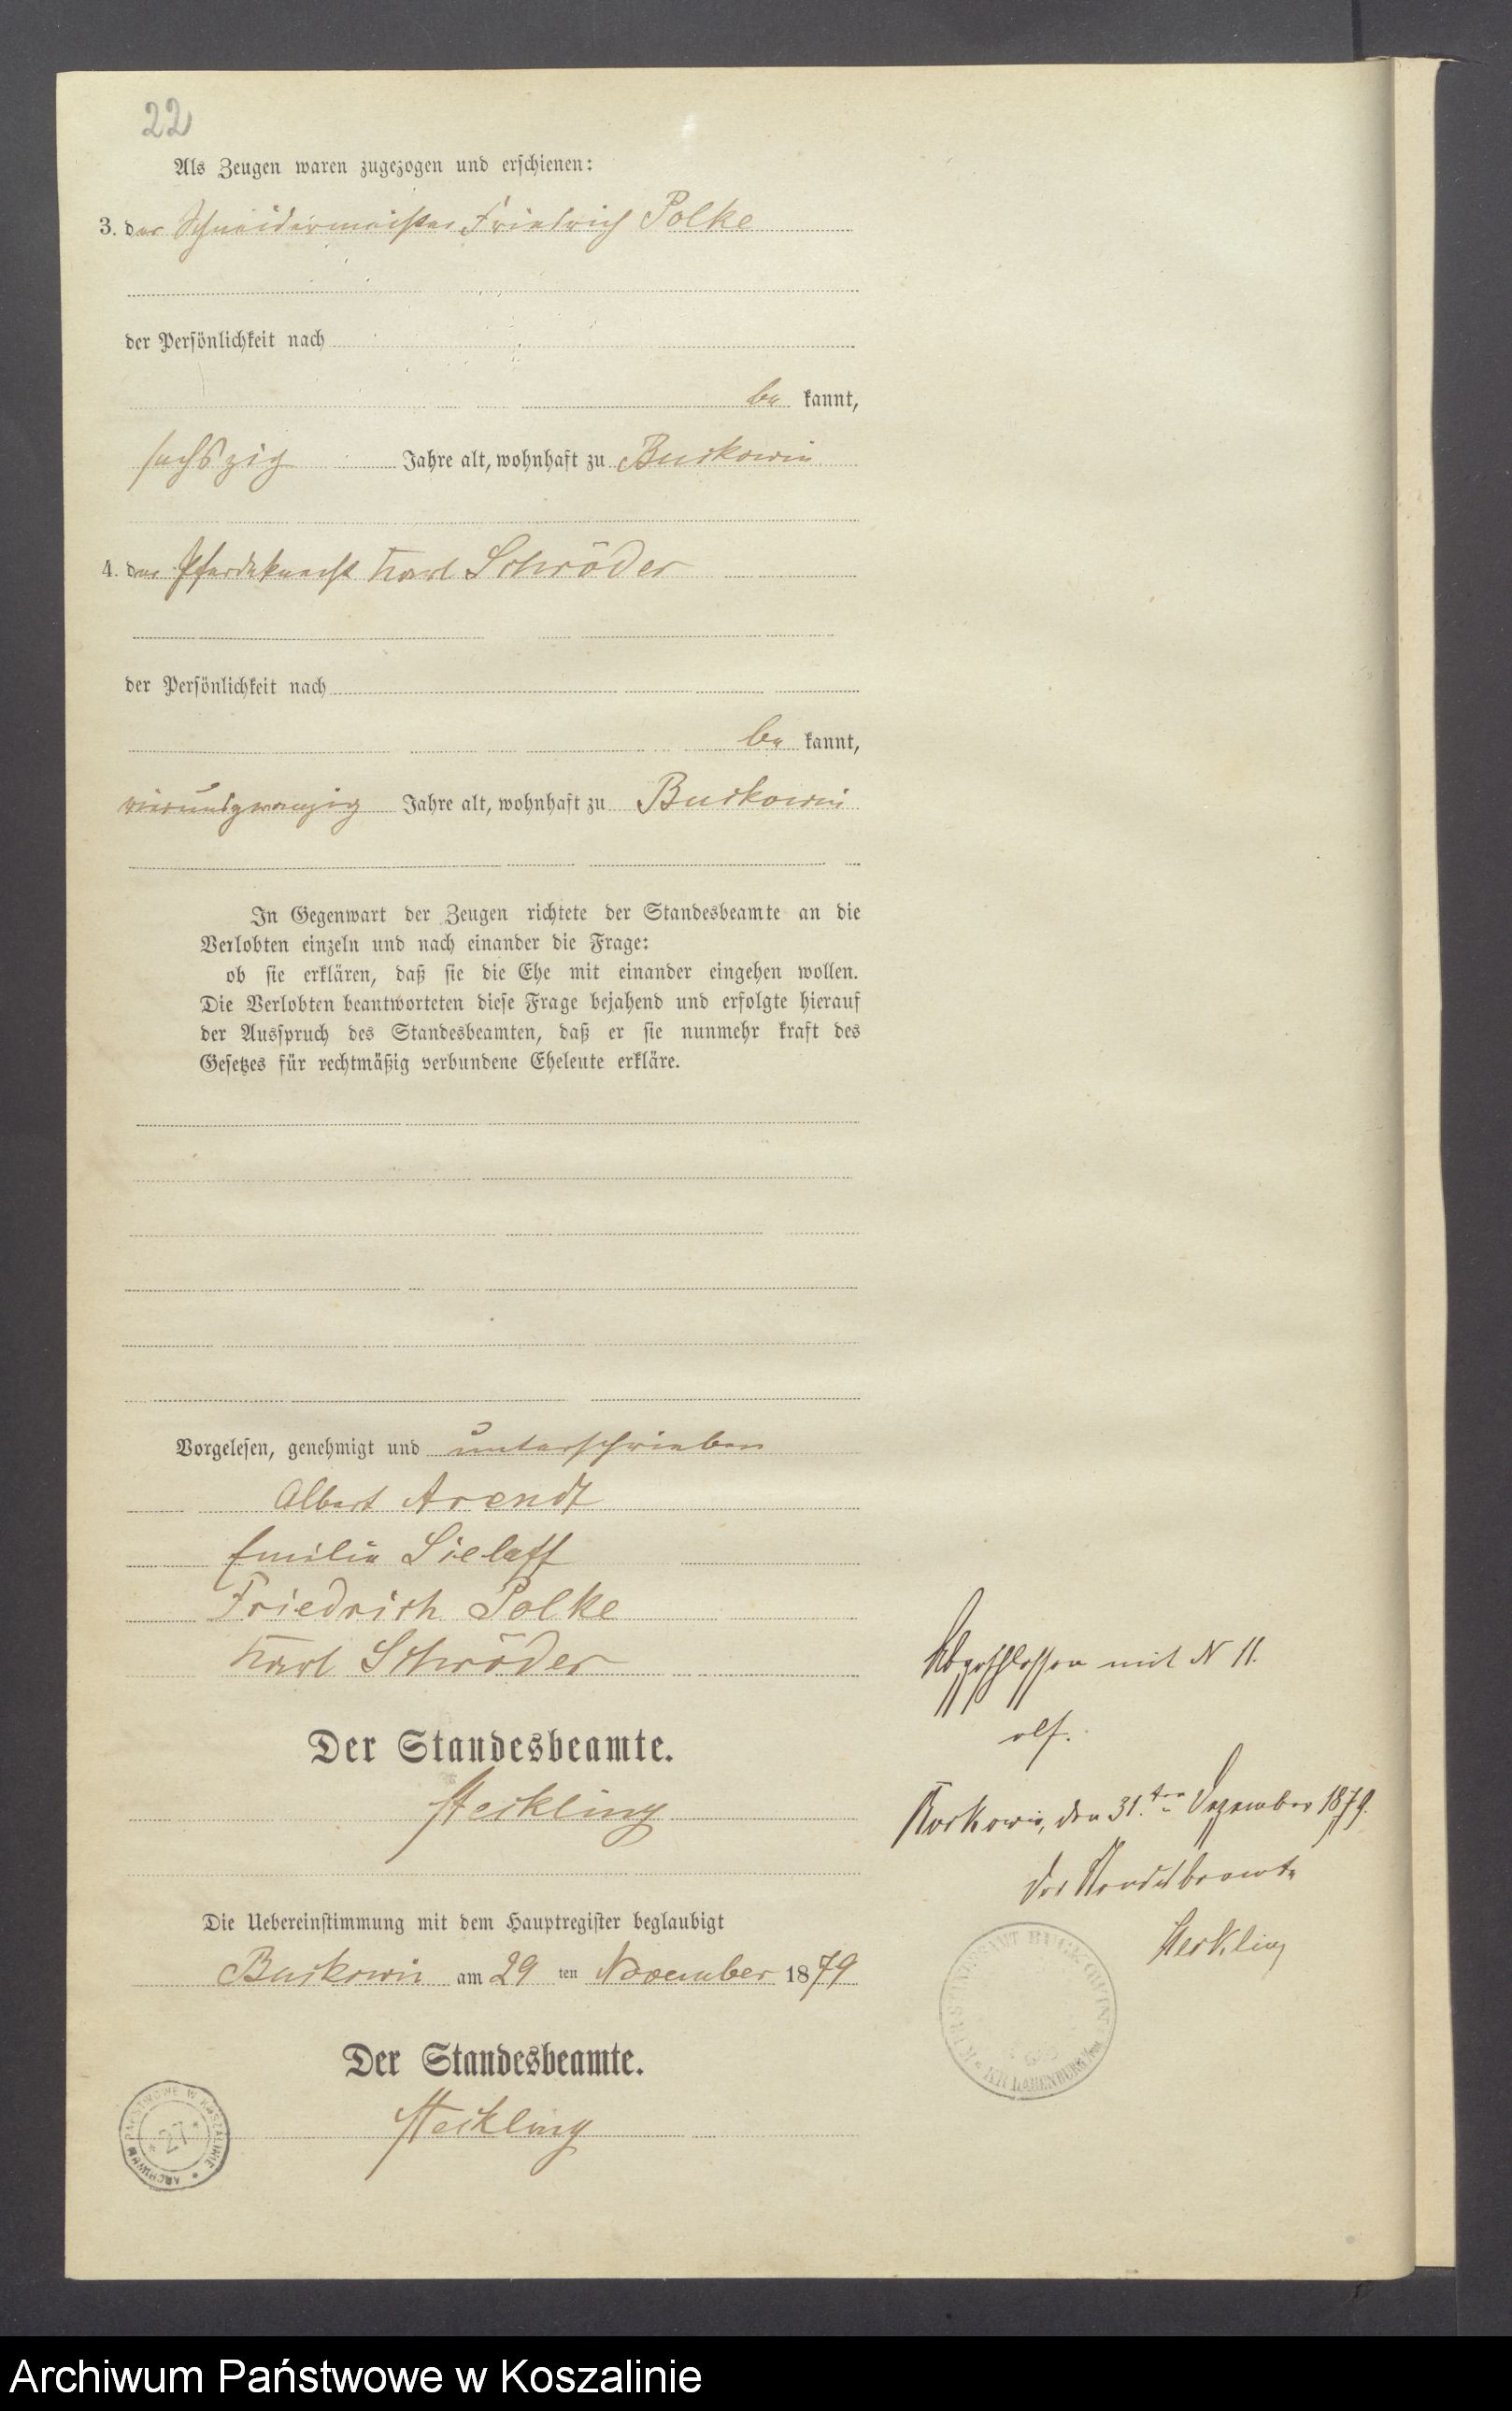 22
Als Zeugen waren zugezogen und erschienen:
3. der Schneidermeister Friedrich Polke
der Persönlichkeit nach
be kannt,
sechszig Jahre alt, wohnhaft zu Buckowin
4. der Pferdeknecht Karl Schröder
der Persönlichkeit nach
be kannt,
vierundzwanzig Jahre alt, wohnhaft zu Buckowin
In Gegenwart der Zeugen richtete der Standesbeamte an die
Verlobten einzeln und nach einander die Frage:
ob sie erklären, daß sie die Ehe mit einander eingehen wollen.
Die Verlobten beantworteten diese Frage bejahend und erfolgte hierauf
der Ausspruch des Standesbeamten, daß er sie nunmehr kraft des
Gesetzes für rechtmäßig verbundene Eheleute erkläre.
Vorgelesen, genehmigt und unterschrieben
Albert Arendt
Emilie Sielaff
Friedrich Polke
Karl Schröder
Der Standesbeamte.
Heckling
Die Uebereinstimmung mit dem Hauptregister beglaubigt
Buckowin am 29 ten November 1879
Der Standesbeamte.
Heckling
Abgeschlossen mit N 11.
elf.
Buckowin, den 31.ten Dezember 1879.
Der Standesbeamte
Heckling
ARCHIWUM PAŃSTWOWE W KOSZALINIE
27
Archiwum Państwowe w Koszalinie